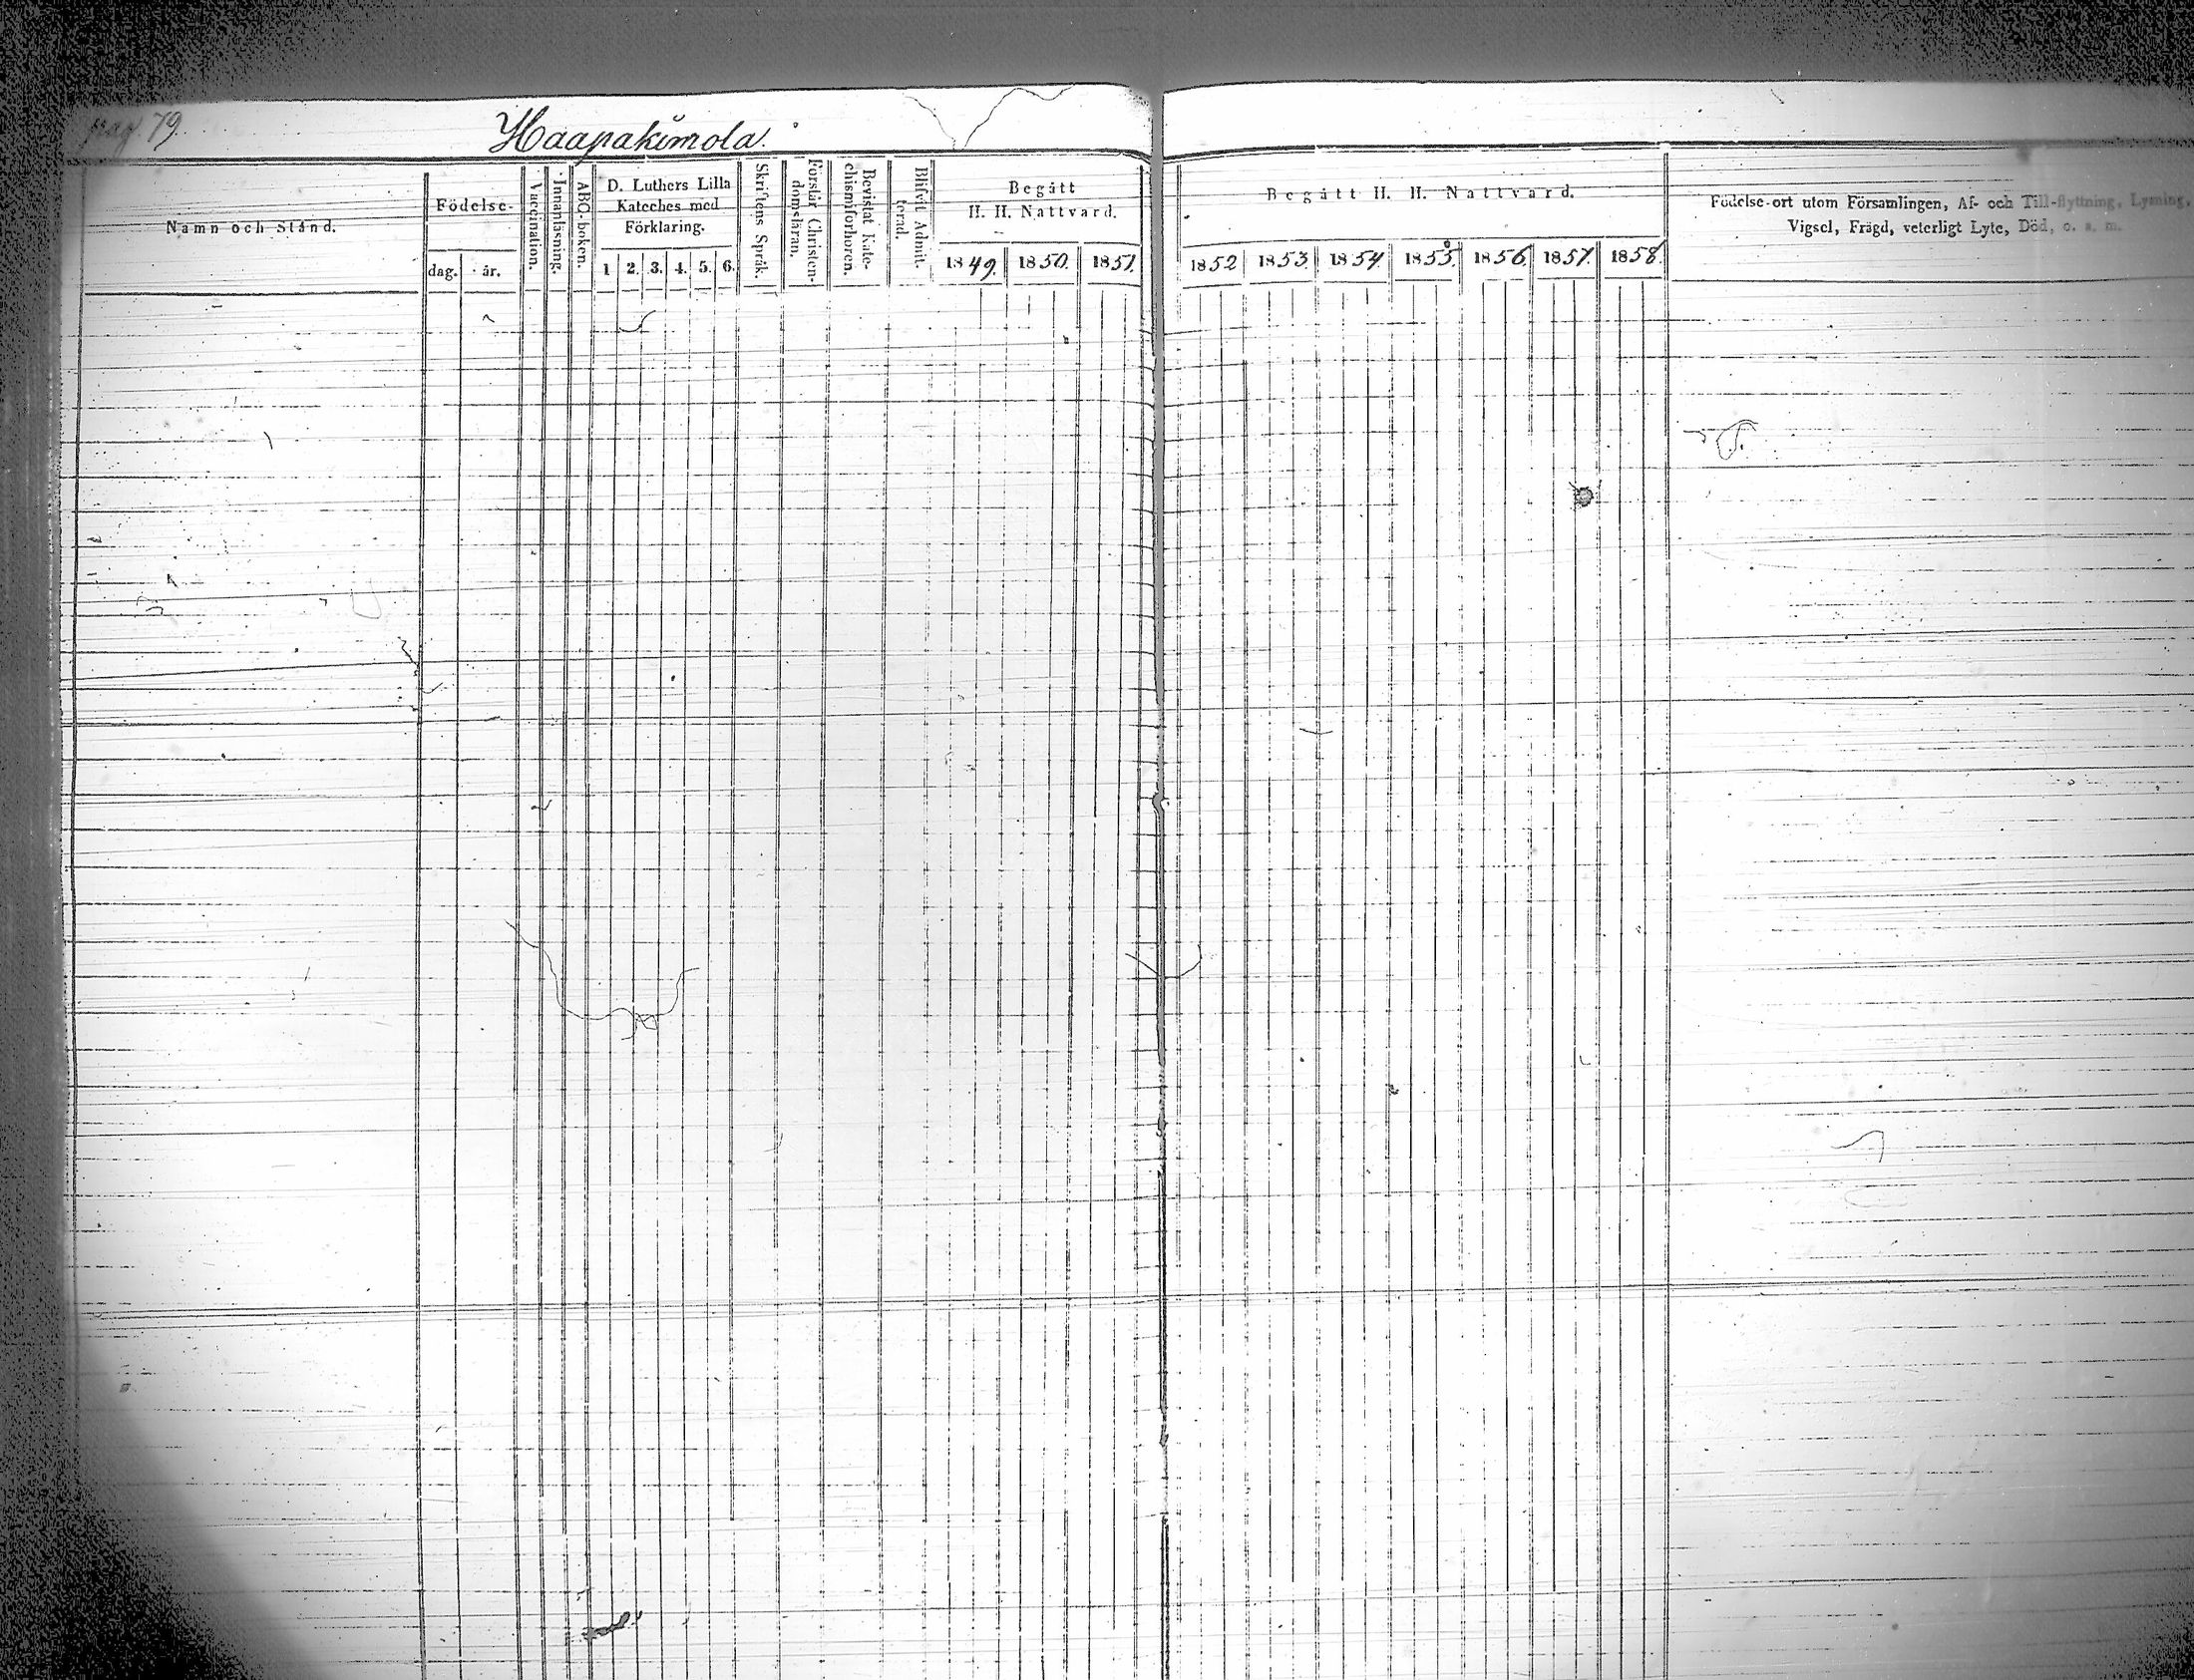 pag. 79.
Haapakimola.
Namn och Stånd.
Födelse-
dag. år.
Vaccination.
Innanläsning.
ABC-boken.
D. Luthers Lilla
Kateches med
Förklaring.
1 2. 3. 4. 5. 6.
Skriftens Språk.
Förstår Christen-
domsläran.
Bevistat Kate-
chismiförhören.
Blifvit Admit-
terad.
Begått
H. H. Nattvard.
1849. 1850. 1851.
Begått H. H. Nattvard.
1852 1853. 1854. 1855. 1856. 1857. 1858.
Födelse-ort utom Församlingen, Af- och Till-flyttning, Lysning,
Vigsel, Frägd, veterligt Lyte, Död, o. s. m.